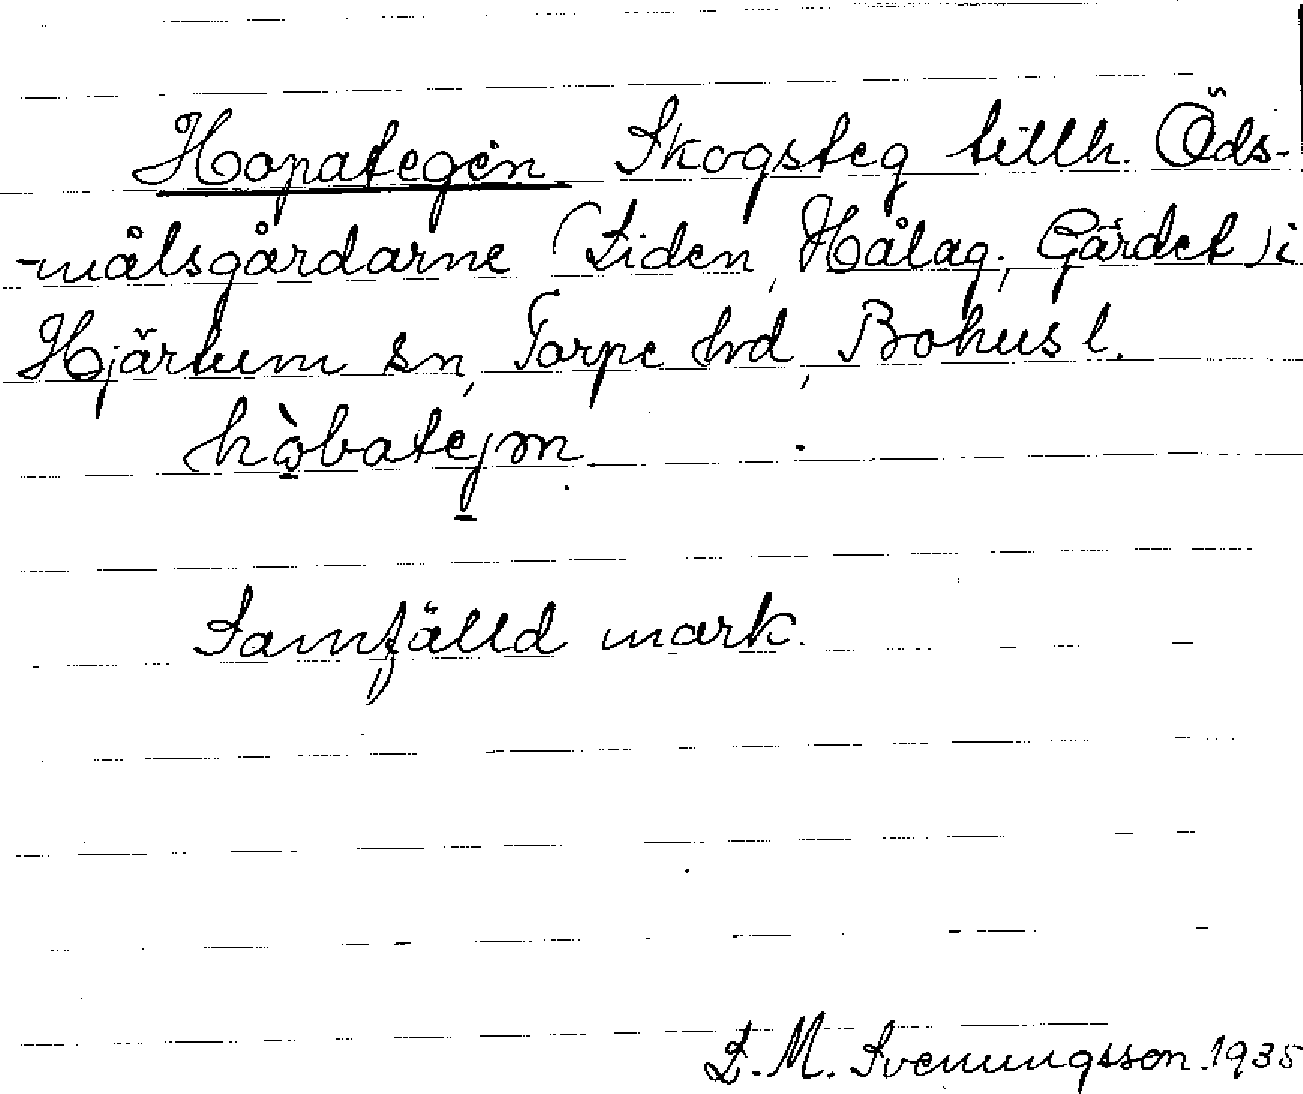 Hopategen Skogsteg tillh. Öds-
-målsgårdarne (Liden, Hålag., Gärdet) i
Hjärtum sn, Torpe hd, Bohusl.
hòbatejɱ
Samfälld mark.
L. M. Svenungsson. 1935